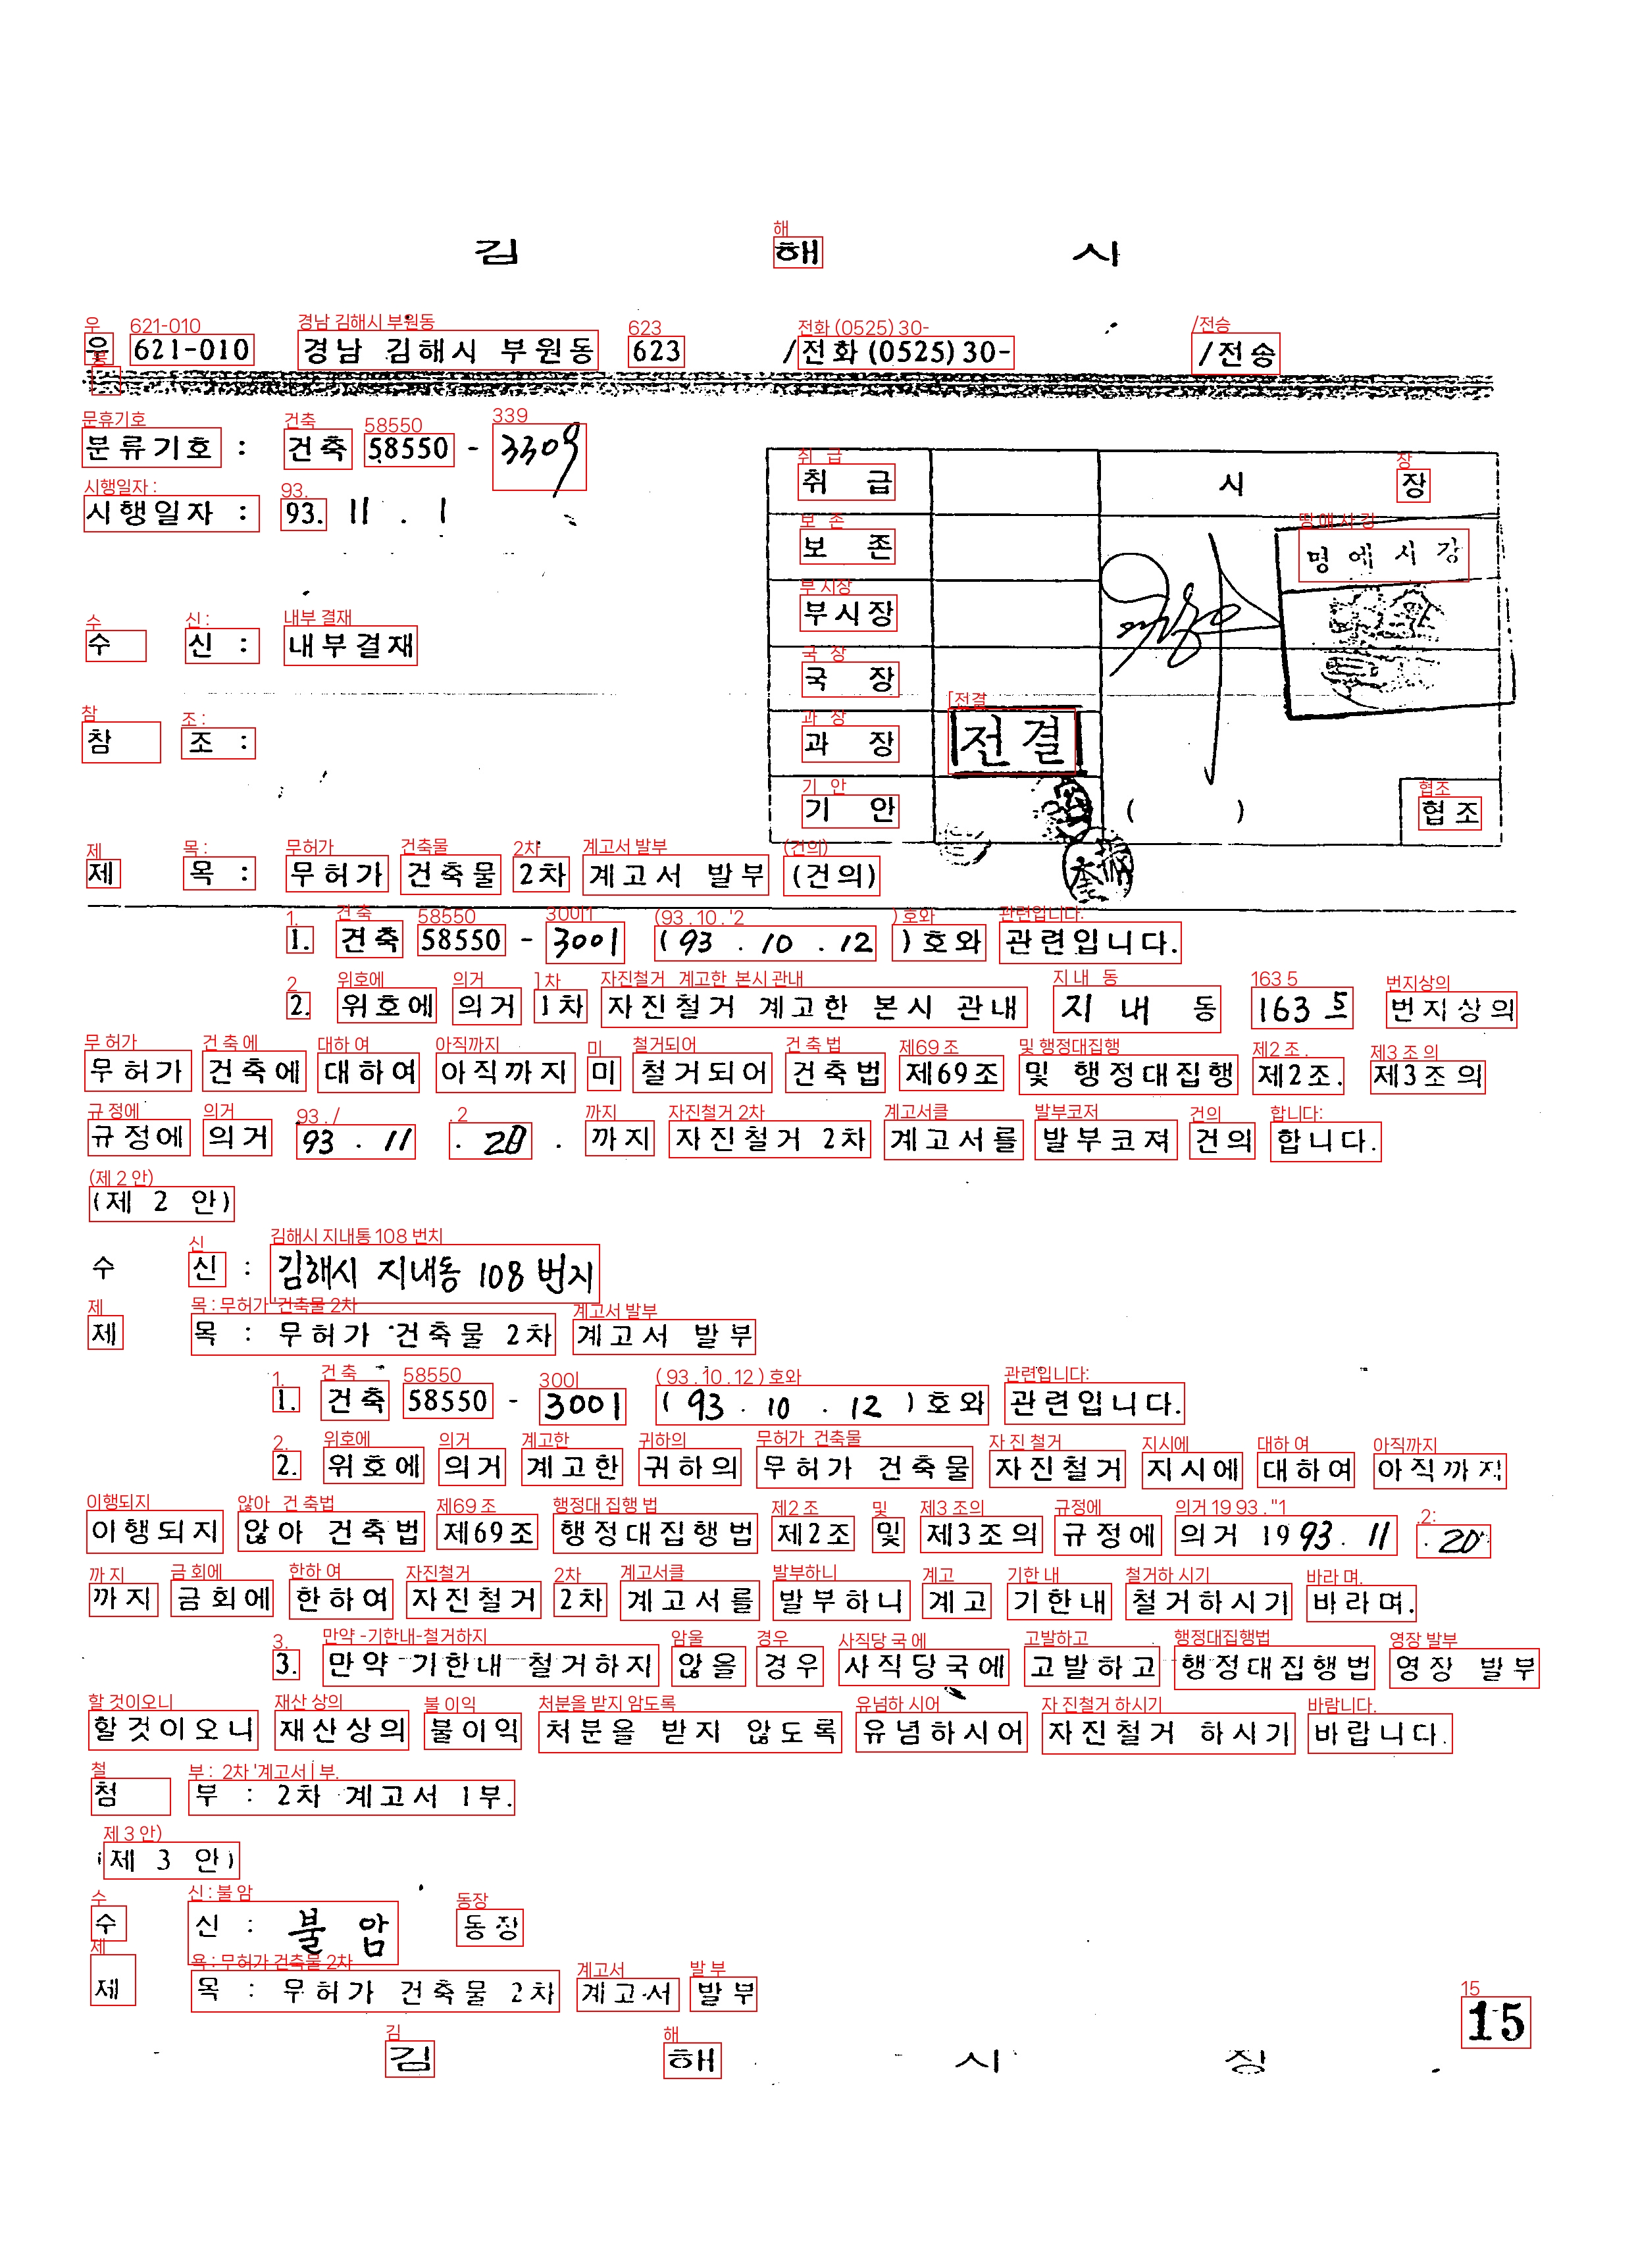 김 해 시
우 621-010 경남 김해시 부원동 623 /전화 (0525) 30- /전송
분류기호 : 건축 58550 - 3309
시행일자 : 93. 11 . 1
취 급 시 장
보 존
부시장
수 신 : 내부결재
국 장
참 조 :
과 장 전결
기 안 ( ) 협조
제 목 : 무허가 건축물 2차 계고서 발부 (건의)
1. 건축 58550 - 3001 (93 . 10 . 12 )호와 관련입니다.
2. 위호에 의거 1차 자진철거 계고한 본시 관내 지 내 동 163 5 번지상의
무허가 건축에 대하여 아직까지 미 철거되어 건축법 제69조 및 행정대집행 제2조. 제3조의
규정에 의거 93 . 11 . 20 . 까지 자진철거 2차 계고서를 발부코져 건의 합니다.
(제 2 안)
수 신 : 김해시 지내동 108 번지
제 목 : 무허가 건축물 2차 계고서 발부
1. 건축 58550 - 3001 ( 93 . 10 . 12 )호와 관련입니다.
2. 위호에 의거 계고한 귀하의 무허가 건축물 자진철거 지시에 대하여 아직까지
이행되지 않아 건축법 제69조 행정대집행법 제2조 및 제3조의 규정에 의거 1993. 11 . 20
까지 금회에 한하여 자진철거 2차 계고서를 발부하니 계고 기한내 철거하시기 바라며.
3. 만약 기한내 철거하지 않을 경우 사직당국에 고발하고 행정대집행법 영장 발부
할것이오니 재산상의 불이익 처분을 받지 않도록 유념하시어 자진철거 하시기 바랍니다.
첨 부 : 2차 계고서 1부.
(제 3 안)
수 신 : 불 암 동장
제 목 : 무허가 건축물 2차 계고서 발부
김 해 시 장
15